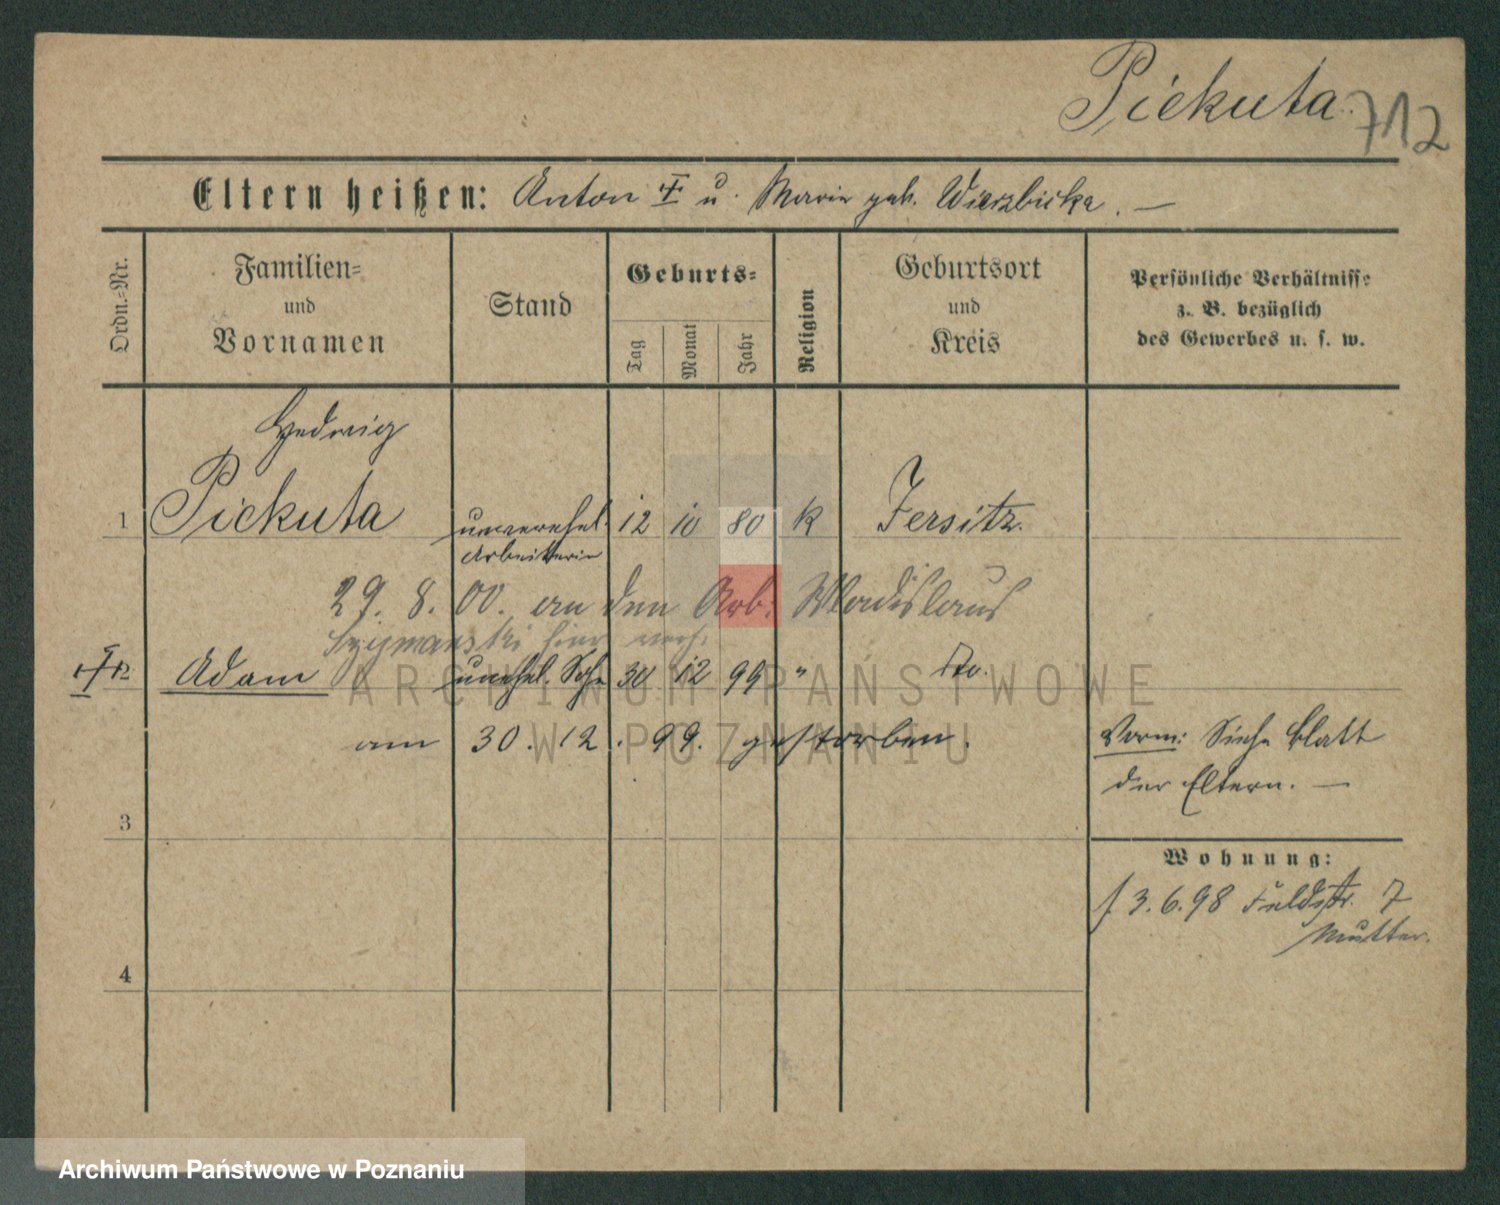 Piekuta 712
Eltern heißen: Anton u. Marie geb. Wierzbicka. —
Ordn.-Nr.
Familien-
und
Vornamen
Stand
Geburts-
Tag
Monat
Jahr
Religion
Geburtsort
und
Kreis
Persönliche Verhältnisse
z. B. bezüglich
des Gewerbes u. s. w.
Hedwig
1 Piekuta unverehel. 12 10 80 k Jersitz.
Arbeiterin
29. 8. 00. an den Arb. Wladislaus
Szymanski hier verh.
Adam unehel. Sohn 30 12 99 " do.
am 30. 12. 99. gestorben.
Verm: Siehe Blatt
der Eltern. —
3
Wohnung:
f. 3. 6. 98 Feldstr. 7
Mutter.
4
ARCHIWUM PAŃSTWOWE
W POZNANIU
Archiwum Państwowe w Poznaniu